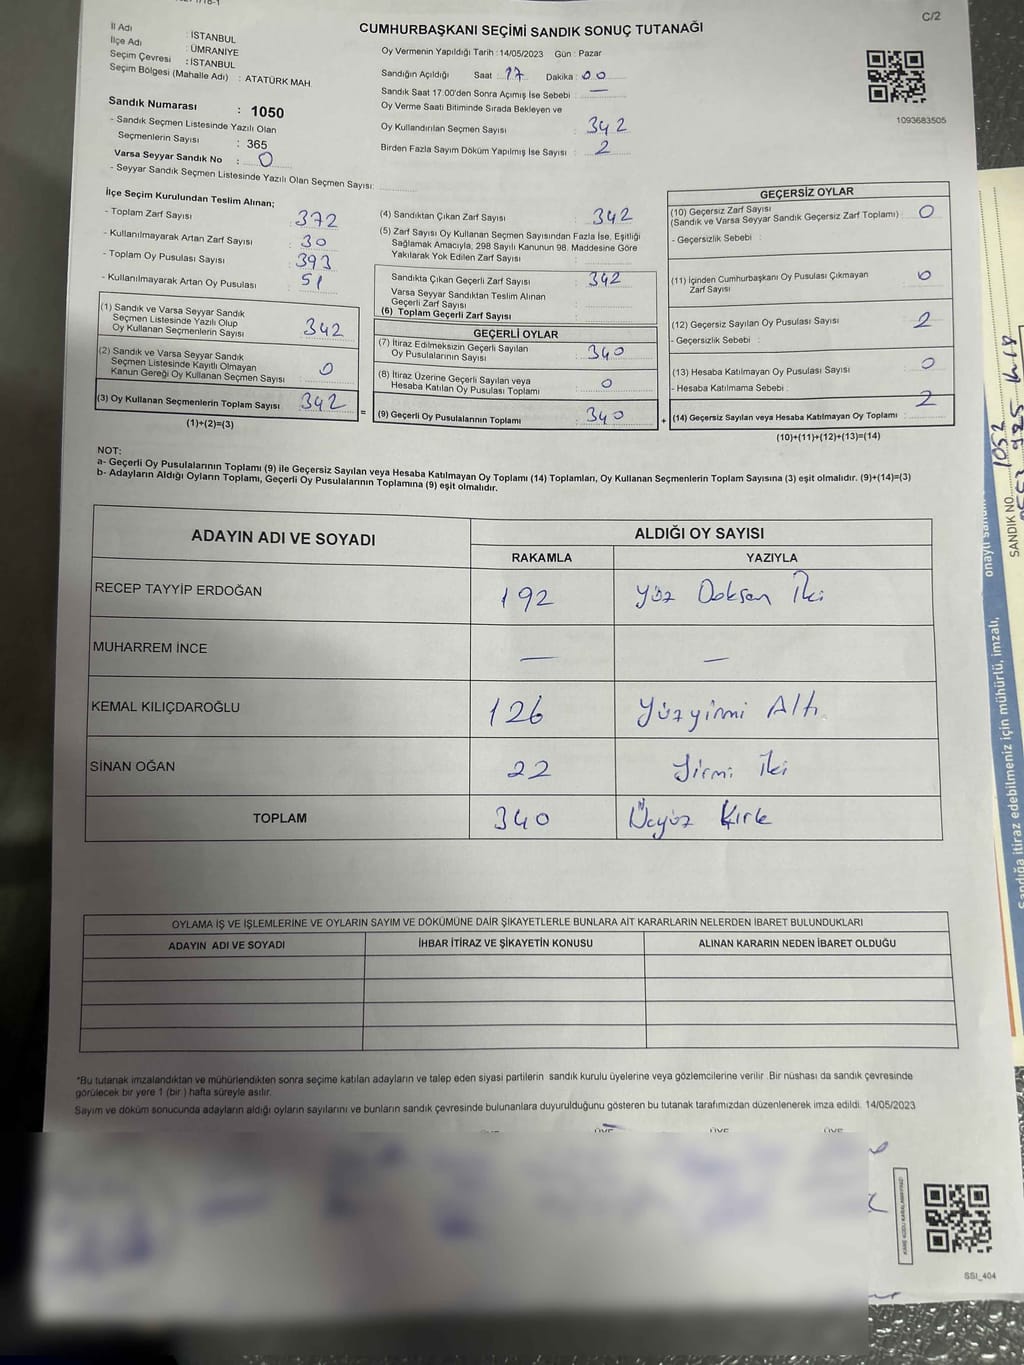 C/2
CUMHURBAŞKANI SEÇİMİ SANDIK SONUÇ TUTANAĞI
İl Adı : İSTANBUL
İlçe Adı : ÜMRANİYE
Seçim Çevresi : İSTANBUL
Seçim Bölgesi (Mahalle Adı) : ATATÜRK MAH.
Sandık Numarası : 1050
- Sandık Seçmen Listesinde Yazılı Olan
Seçmenlerin Sayısı : 365
Varsa Seyyar Sandık No : 0
- Seyyar Sandık Seçmen Listesinde Yazılı Olan Seçmen Sayısı:
Oy Vermenin Yapıldığı Tarih : 14/05/2023 Gün : Pazar
Sandığın Açıldığı Saat : 17 Dakika : 00
Sandık Saat 17:00'den Sonra Açımış İse Sebebi : —
Oy Verme Saati Bitiminde Sırada Bekleyen ve
Oy Kullandırılan Seçmen Sayısı : 342
Birden Fazla Sayım Döküm Yapılmış İse Sayısı : 2
1093683505
İlçe Seçim Kurulundan Teslim Alınan;
- Toplam Zarf Sayısı : 372
- Kullanılmayarak Artan Zarf Sayısı : 30
- Toplam Oy Pusulası Sayısı : 393
- Kullanılmayarak Artan Oy Pusulası : 51
(1) Sandık ve Varsa Seyyar Sandık
Seçmen Listesinde Yazılı Olup
Oy Kullanan Seçmenlerin Sayısı : 342
(2) Sandık ve Varsa Seyyar Sandık
Seçmen Listesinde Kayıtlı Olmayan
Kanun Gereği Oy Kullanan Seçmen Sayısı : 0
(3) Oy Kullanan Seçmenlerin Toplam Sayısı : 342
(1)+(2)=(3)
=
(4) Sandıktan Çıkan Zarf Sayısı : 342
(5) Zarf Sayısı Oy Kullanan Seçmen Sayısından Fazla İse, Eşitliği
Sağlamak Amacıyla, 298 Sayılı Kanunun 98. Maddesine Göre
Yakılarak Yok Edilen Zarf Sayısı :
Sandıkta Çıkan Geçerli Zarf Sayısı : 342
Varsa Seyyar Sandıktan Teslim Alınan
Geçerli Zarf Sayısı :
(6) Toplam Geçerli Zarf Sayısı :
GEÇERLİ OYLAR
(7) İtiraz Edilmeksizin Geçerli Sayılan
Oy Pusulalarının Sayısı : 340
(8) İtiraz Üzerine Geçerli Sayılan veya
Hesaba Katılan Oy Pusulası Toplamı : 0
(9) Geçerli Oy Pusulalarının Toplamı : 340
+
GEÇERSİZ OYLAR
(10) Geçersiz Zarf Sayısı
(Sandık ve Varsa Seyyar Sandık Geçersiz Zarf Toplamı) : 0
- Geçersizlik Sebebi :
(11) İçinden Cumhurbaşkanı Oy Pusulası Çıkmayan
Zarf Sayısı : 0
(12) Geçersiz Sayılan Oy Pusulası Sayısı : 2
- Geçersizlik Sebebi :
(13) Hesaba Katılmayan Oy Pusulası Sayısı : 0
- Hesaba Katılmama Sebebi :
(14) Geçersiz Sayılan veya Hesaba Katılmayan Oy Toplamı : 2
(10)+(11)+(12)+(13)=(14)
NOT:
a- Geçerli Oy Pusulalarının Toplamı (9) ile Geçersiz Sayılan veya Hesaba Katılmayan Oy Toplamı (14) Toplamları, Oy Kullanan Seçmenlerin Toplam Sayısına (3) eşit olmalıdır. (9)+(14)=(3)
b- Adayların Aldığı Oyların Toplamı, Geçerli Oy Pusulalarının Toplamına (9) eşit olmalıdır.
ADAYIN ADI VE SOYADI ALDIĞI OY SAYISI
RAKAMLA YAZIYLA
RECEP TAYYİP ERDOĞAN 192 Yüz Doksan İki
MUHARREM İNCE — —
KEMAL KILIÇDAROĞLU 126 Yüzyirmi Altı
SİNAN OĞAN 22 Yirmi İki
TOPLAM 340 Üçyüz Kırk
OYLAMA İŞ VE İŞLEMLERİNE VE OYLARIN SAYIM VE DÖKÜMÜNE DAİR ŞİKAYETLERLE BUNLARA AİT KARARLARIN NELERDEN İBARET BULUNDUKLARI
ADAYIN ADI VE SOYADI İHBAR İTİRAZ VE ŞİKAYETİN KONUSU ALINAN KARARIN NEDEN İBARET OLDUĞU
*Bu tutanak imzalandıktan ve mühürlendikten sonra seçime katılan adayların ve talep eden siyasi partilerin sandık kurulu üyelerine veya gözlemcilerine verilir .Bir nüshası da sandık çevresinde
görülecek bir yere 1 (bir ) hafta süreyle asılır.
Sayım ve döküm sonucunda adayların aldığı oyların sayılarını ve bunların sandık çevresinde bulunanlara duyurulduğunu gösteren bu tutanak tarafımızdan düzenlenerek imza edildi. 14/05/2023
ÜYE ÜYE ÜYE
SSİ_404
SANDIK NO
Sandığa itiraz edebilmeniz için mühürlü, imzalı,